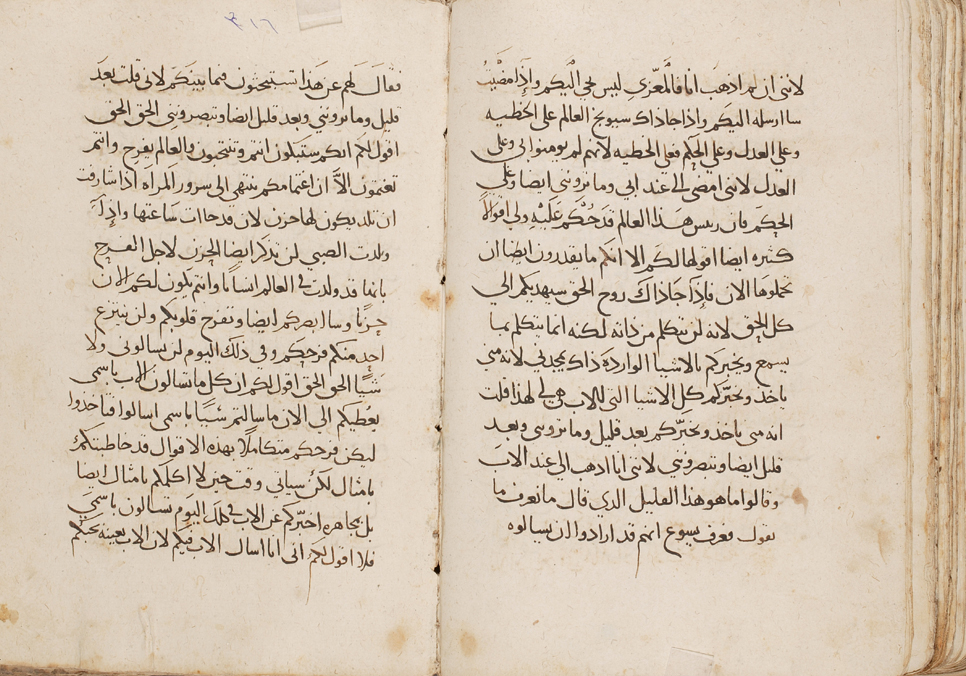 لاننى ان لم اذهب انا فالمعزي ليس يجي اليكم واذا مضيت
سا ارسله اليكم واذا جا ذاك سيوبخ العالم على الخطيه
وعلى العدل وعلى الحكم فعلى الخطيه لانهم لم يومنوا بي وعلى
العدل لاننى امضى الى عند ابي وما ترونني ايضا وعلى
الحكم فان ريس هذا العالم قد حُكم عَلَيْهِ ولى اقوالاً
كثيره ايضا اقولها لكم الا انكم ما يقدرون ايضا ان
تحملوها الان فاذا جا ذاك روح الحق سيهديكم الي
كل الحق لانه لن يتكلم من ذاته لكنه انما يتكلم بما
يسمع ويخبركم بالاشيا الوارده ذاك يمجدني لانه مني
ياخذ ويخبركم كل الاشيا التى للاب هى لي لهذا قلت
انه منى ياخذ ويخبركم بعد قليل وما ترونى وبعد
قليل ايضا وتبصرونني لاننى انا اذهب الي عند الاب
وقالوا ما هو هذا القليل الذي قال ما نعرف ما
يقول فعرف يسوع انهم قد ارادوا ان يسالوه
١٦
فقال لهم عن هذا تستبحثون فيما بينكم لانى قلت بعد
قليل وما ترونني وبعد قليل ايضا وتبصرونني الحق الحق
اقول لكم انكم ستبكون انتم وتنتحبون والعالم يفرح وانتم
تغتمون الاَّ ان اغتمامكم ينتهى الى سرور المرأه اذا شارفت
ان تلد يكون لها حزن لان قد جاات ساعتها واذا
ولدت الصبي لن تذكر ايضا الحزن لاجل الفرح
بانها قد ولدت في العالم انسانا وانتم يكون لكم الان
حزنًا وسا ابصركم ايضا وتفرح قلوبكم ولن ينتزع
احد منكم فرحكم وفي ذلك اليوم لن تسالوني ولا
شيًا الحق الحق اقول لكم ان كل ما تسالون الاب باسمى
يعُطيكم الى الان ما سالتم شيًا باسمى اسالوا فتاخذوا
ليكن فرحكم متكاملاً بهذه الاقوال قد خاطبتكم
بامثال لكن سياتي وقت حين لا اكلمكم بامثال ايضا
بل مجاهره اخبركم عن الاب في ذلك اليوم تسالون باسمي
فلا اقول لكم انى انا اسال الاب فيكم لان الاب بعينه يحبكم